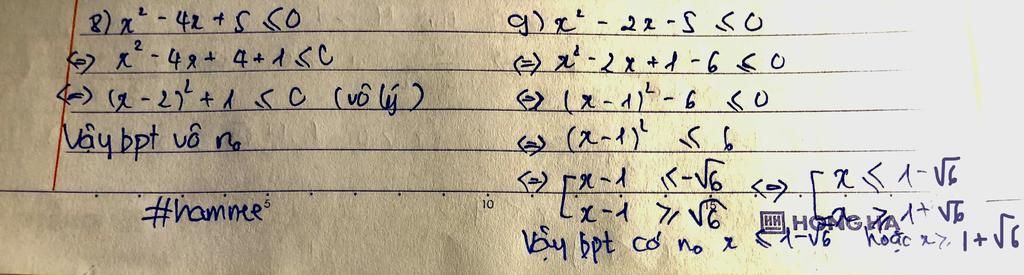 8) x² - 4x + 5 ≤ 0
<=> x² - 4x + 4 + 1 ≤ 0
<=> (x - 2)² + 1 ≤ 0 (vô lý)
Vậy bpt vô no
#hamnee
9) x² - 2x - 5 ≤ 0
<=> x² - 2x + 1 - 6 ≤ 0
<=> (x - 1)² - 6 ≤ 0
<=> (x - 1)² ≤ 6
<=> [ x - 1 ≤ -√6 <=> [ x ≤ 1 - √6
x - 1 ≥ √6 x ≥ 1 + √6
Vậy bpt có no x ≤ 1 - √6 hoặc x ≥ 1 + √6
5 10 15
HH HONG HA